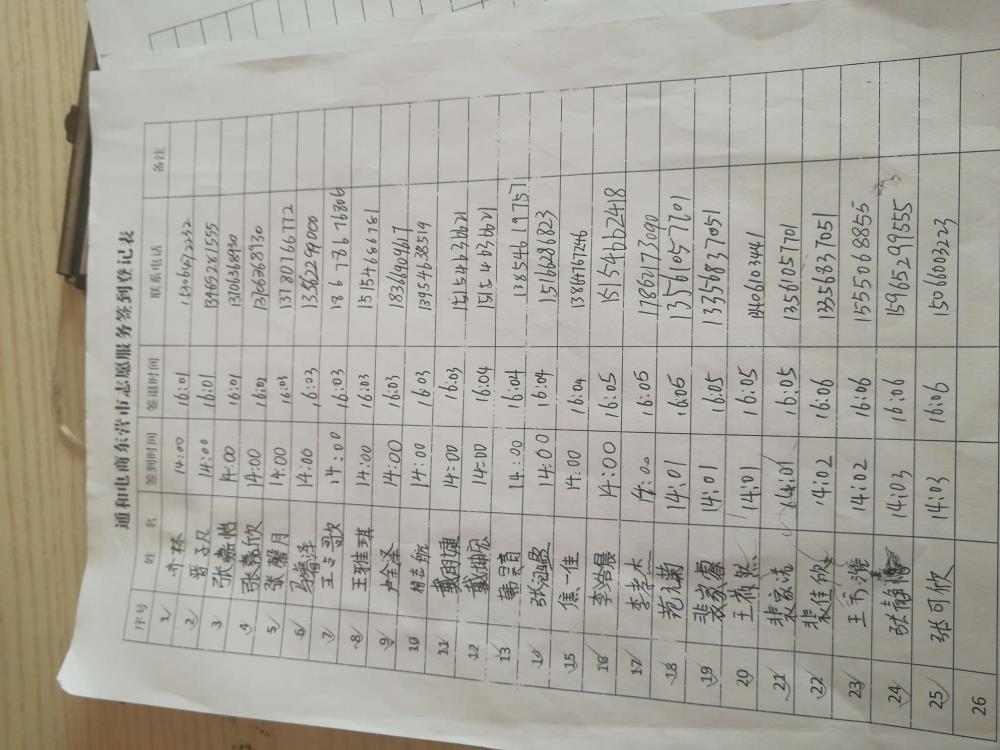 通和电商东营市志愿服务签到登记表
序号 姓 名 签到时间 签退时间 联系电话 备注
1 林 14:00 16:01 15306472232
2 晋子凡 14:00 16:01 13465281555
3 张嘉怡 14:00 16:01 13706368930
4 张嘉欣 14:00 16:02 13706368930
5 张馨月 14:00 16:03 13780766772
6 马睿泽 14:00 16:03 13562299000
7 王占歌 14:00 16:03 18678676806
8 王雅琪 14:00 16:03 15154686781
9 卢全泽 14:00 16:03 18369904617
10 志航 14:00 16:03 13954638519
11 戴明捷 14:00 16:03 15154636621
12 戴坤宏 14:00 16:04 15154636621
13 韩昊育 14:00 16:04 13854619757
14 张涵盈 14:00 16:04 15166286823
15 焦一佳 14:00 16:04 13846767246
16 李浴晨 14:00 16:05 15154662418
17 李孝木 14:00 16:05 17862173090
18 范元菊 14:01 16:05 13561057701
19 裴家睿 14:01 16:05 13356837051
20 王蒴然 14:01 16:05 13406103441
21 裴家浩 14:01 16:05 13561057701
22 裴佳欣 14:02 16:06 13356837051
23 王 14:02 16:06 15550688555
24 张静 14:03 16:06 15965299555
25 张可欣 14:03 16:06 15066003223
26